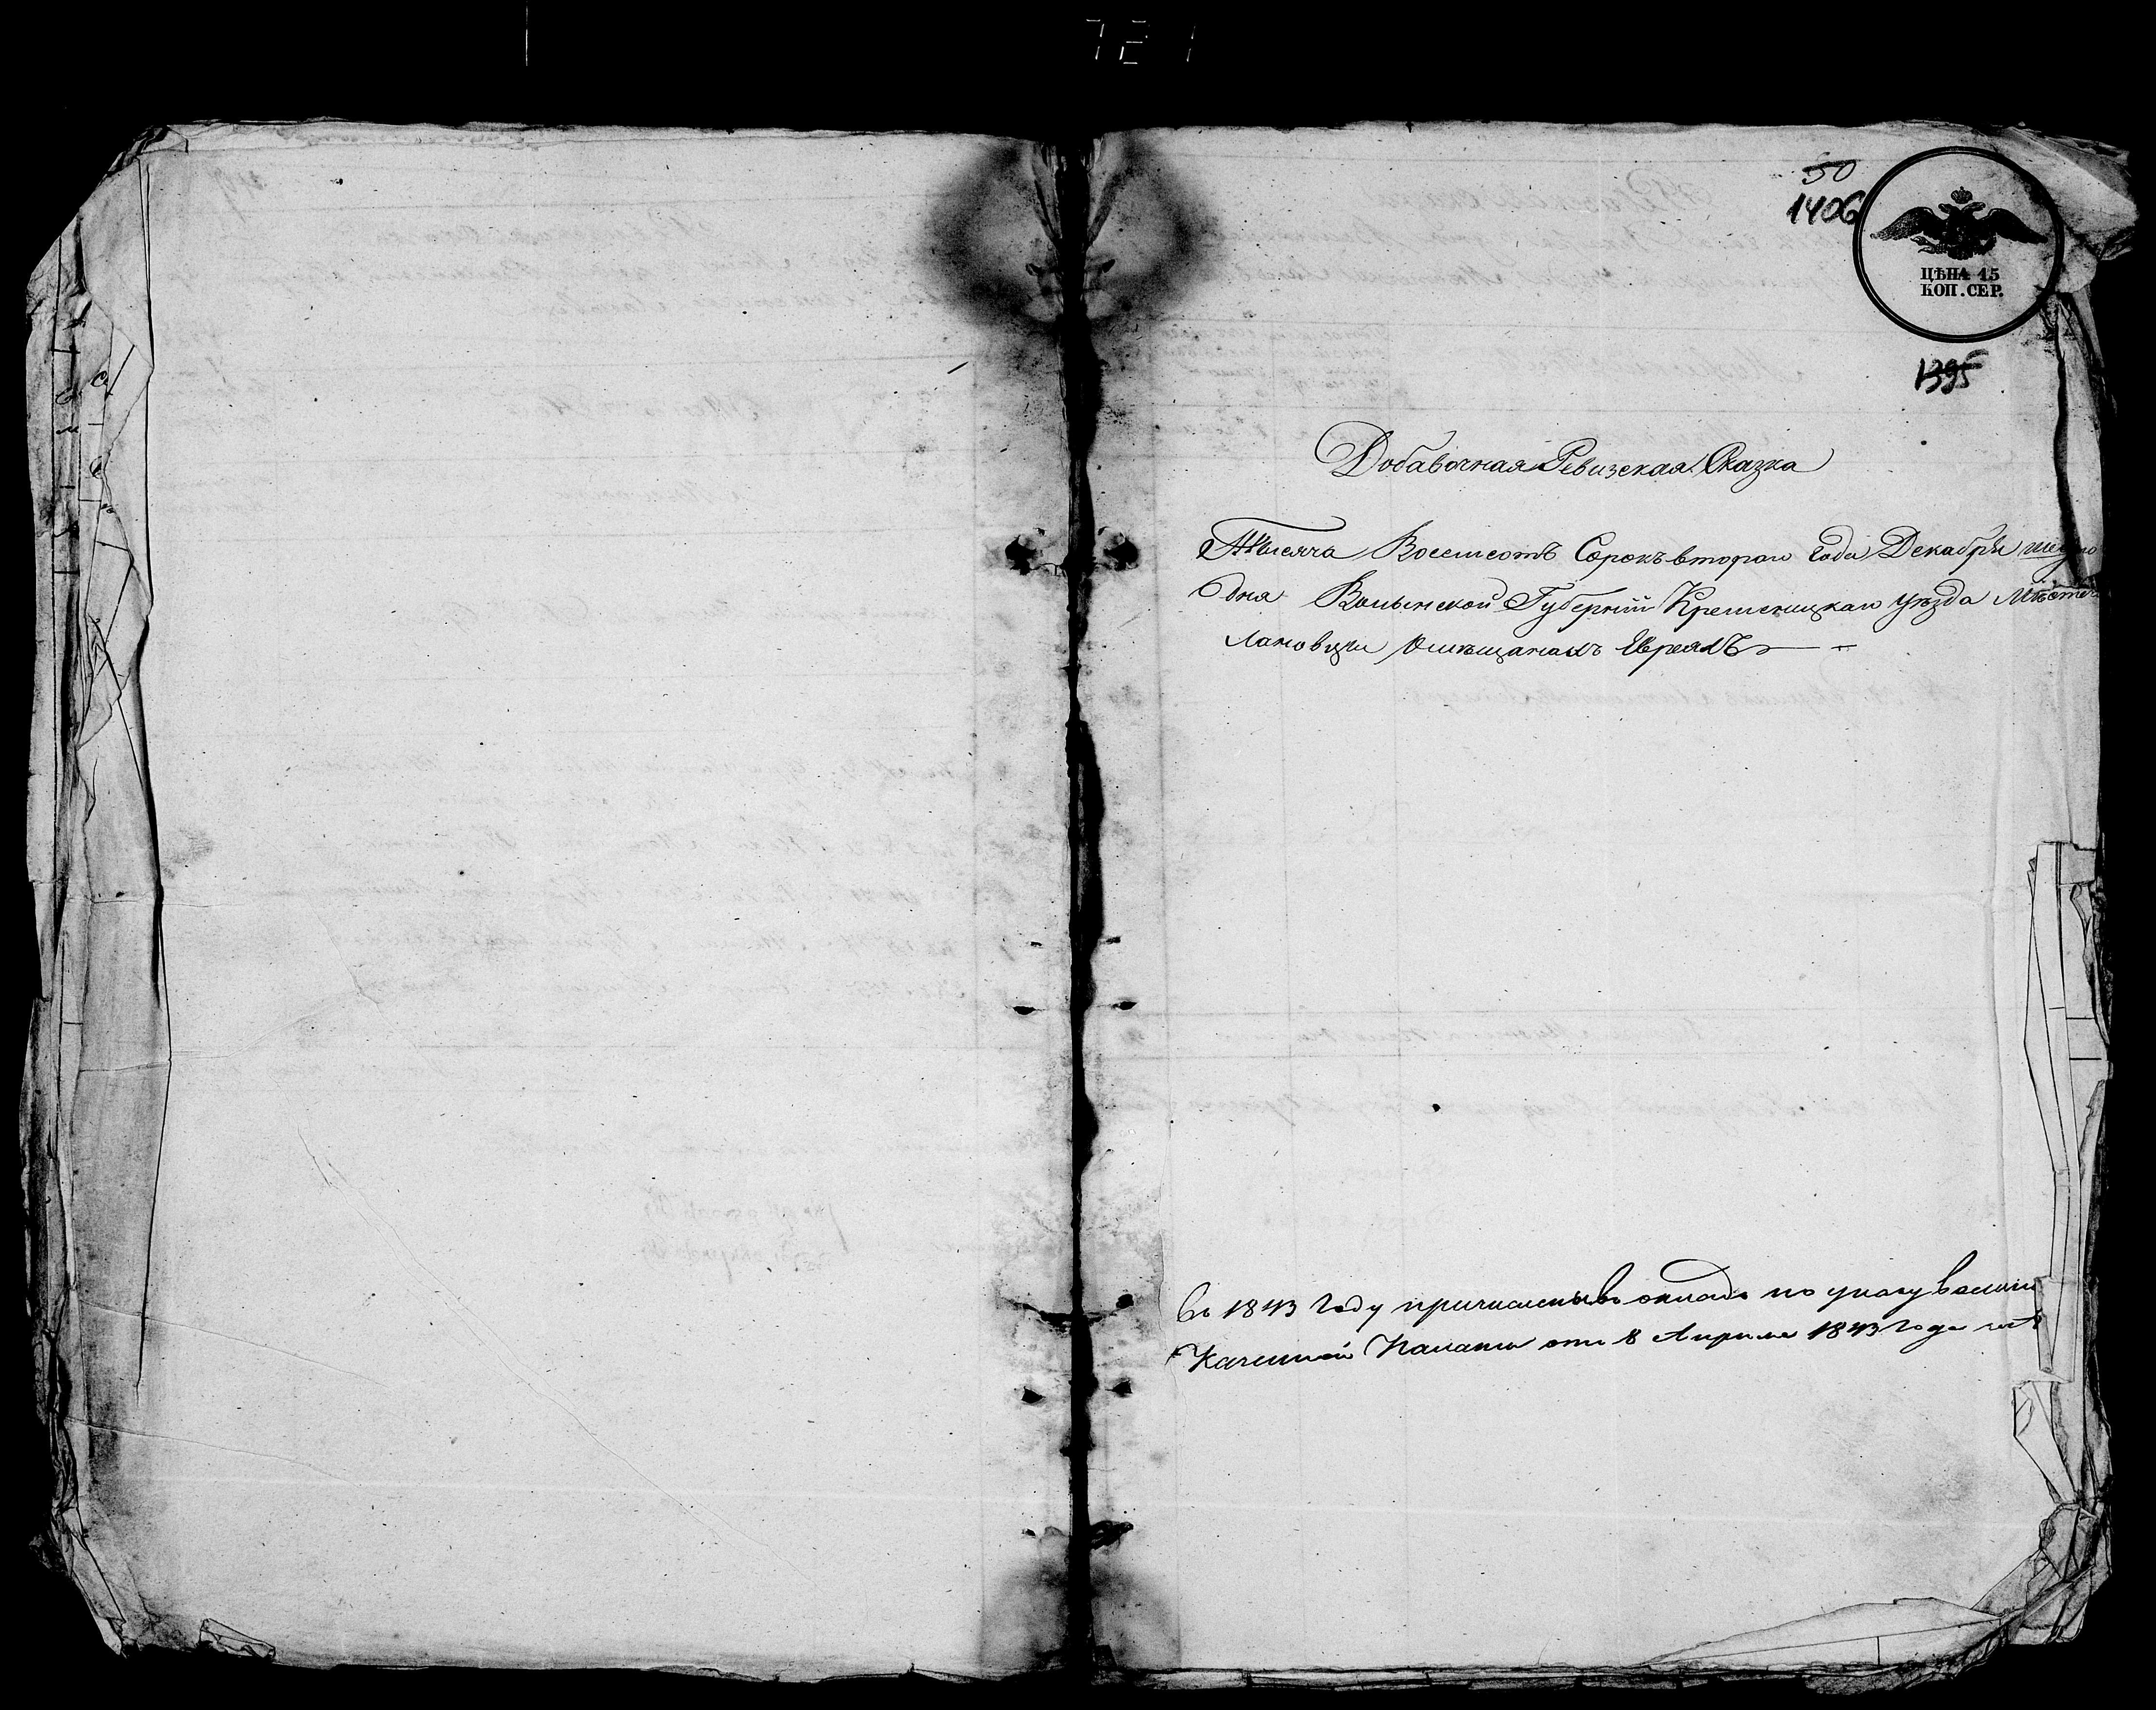 721
50
1406
ЦѢНА 15
КОП. СЕР.
1395
Добавочная Ревизская Сказка
Тысяча Восемсотъ Сорокъ втораго года Декабря
дня Волынской Губерніи Кременецкаго уѣзда Мѣстеч
Лановцы о мѣщанахъ Евреяхъ
Въ 1843 году причислены въ окладъ по указу Волын
Казенной Палаты отъ 8 Апрѣля 1843 года